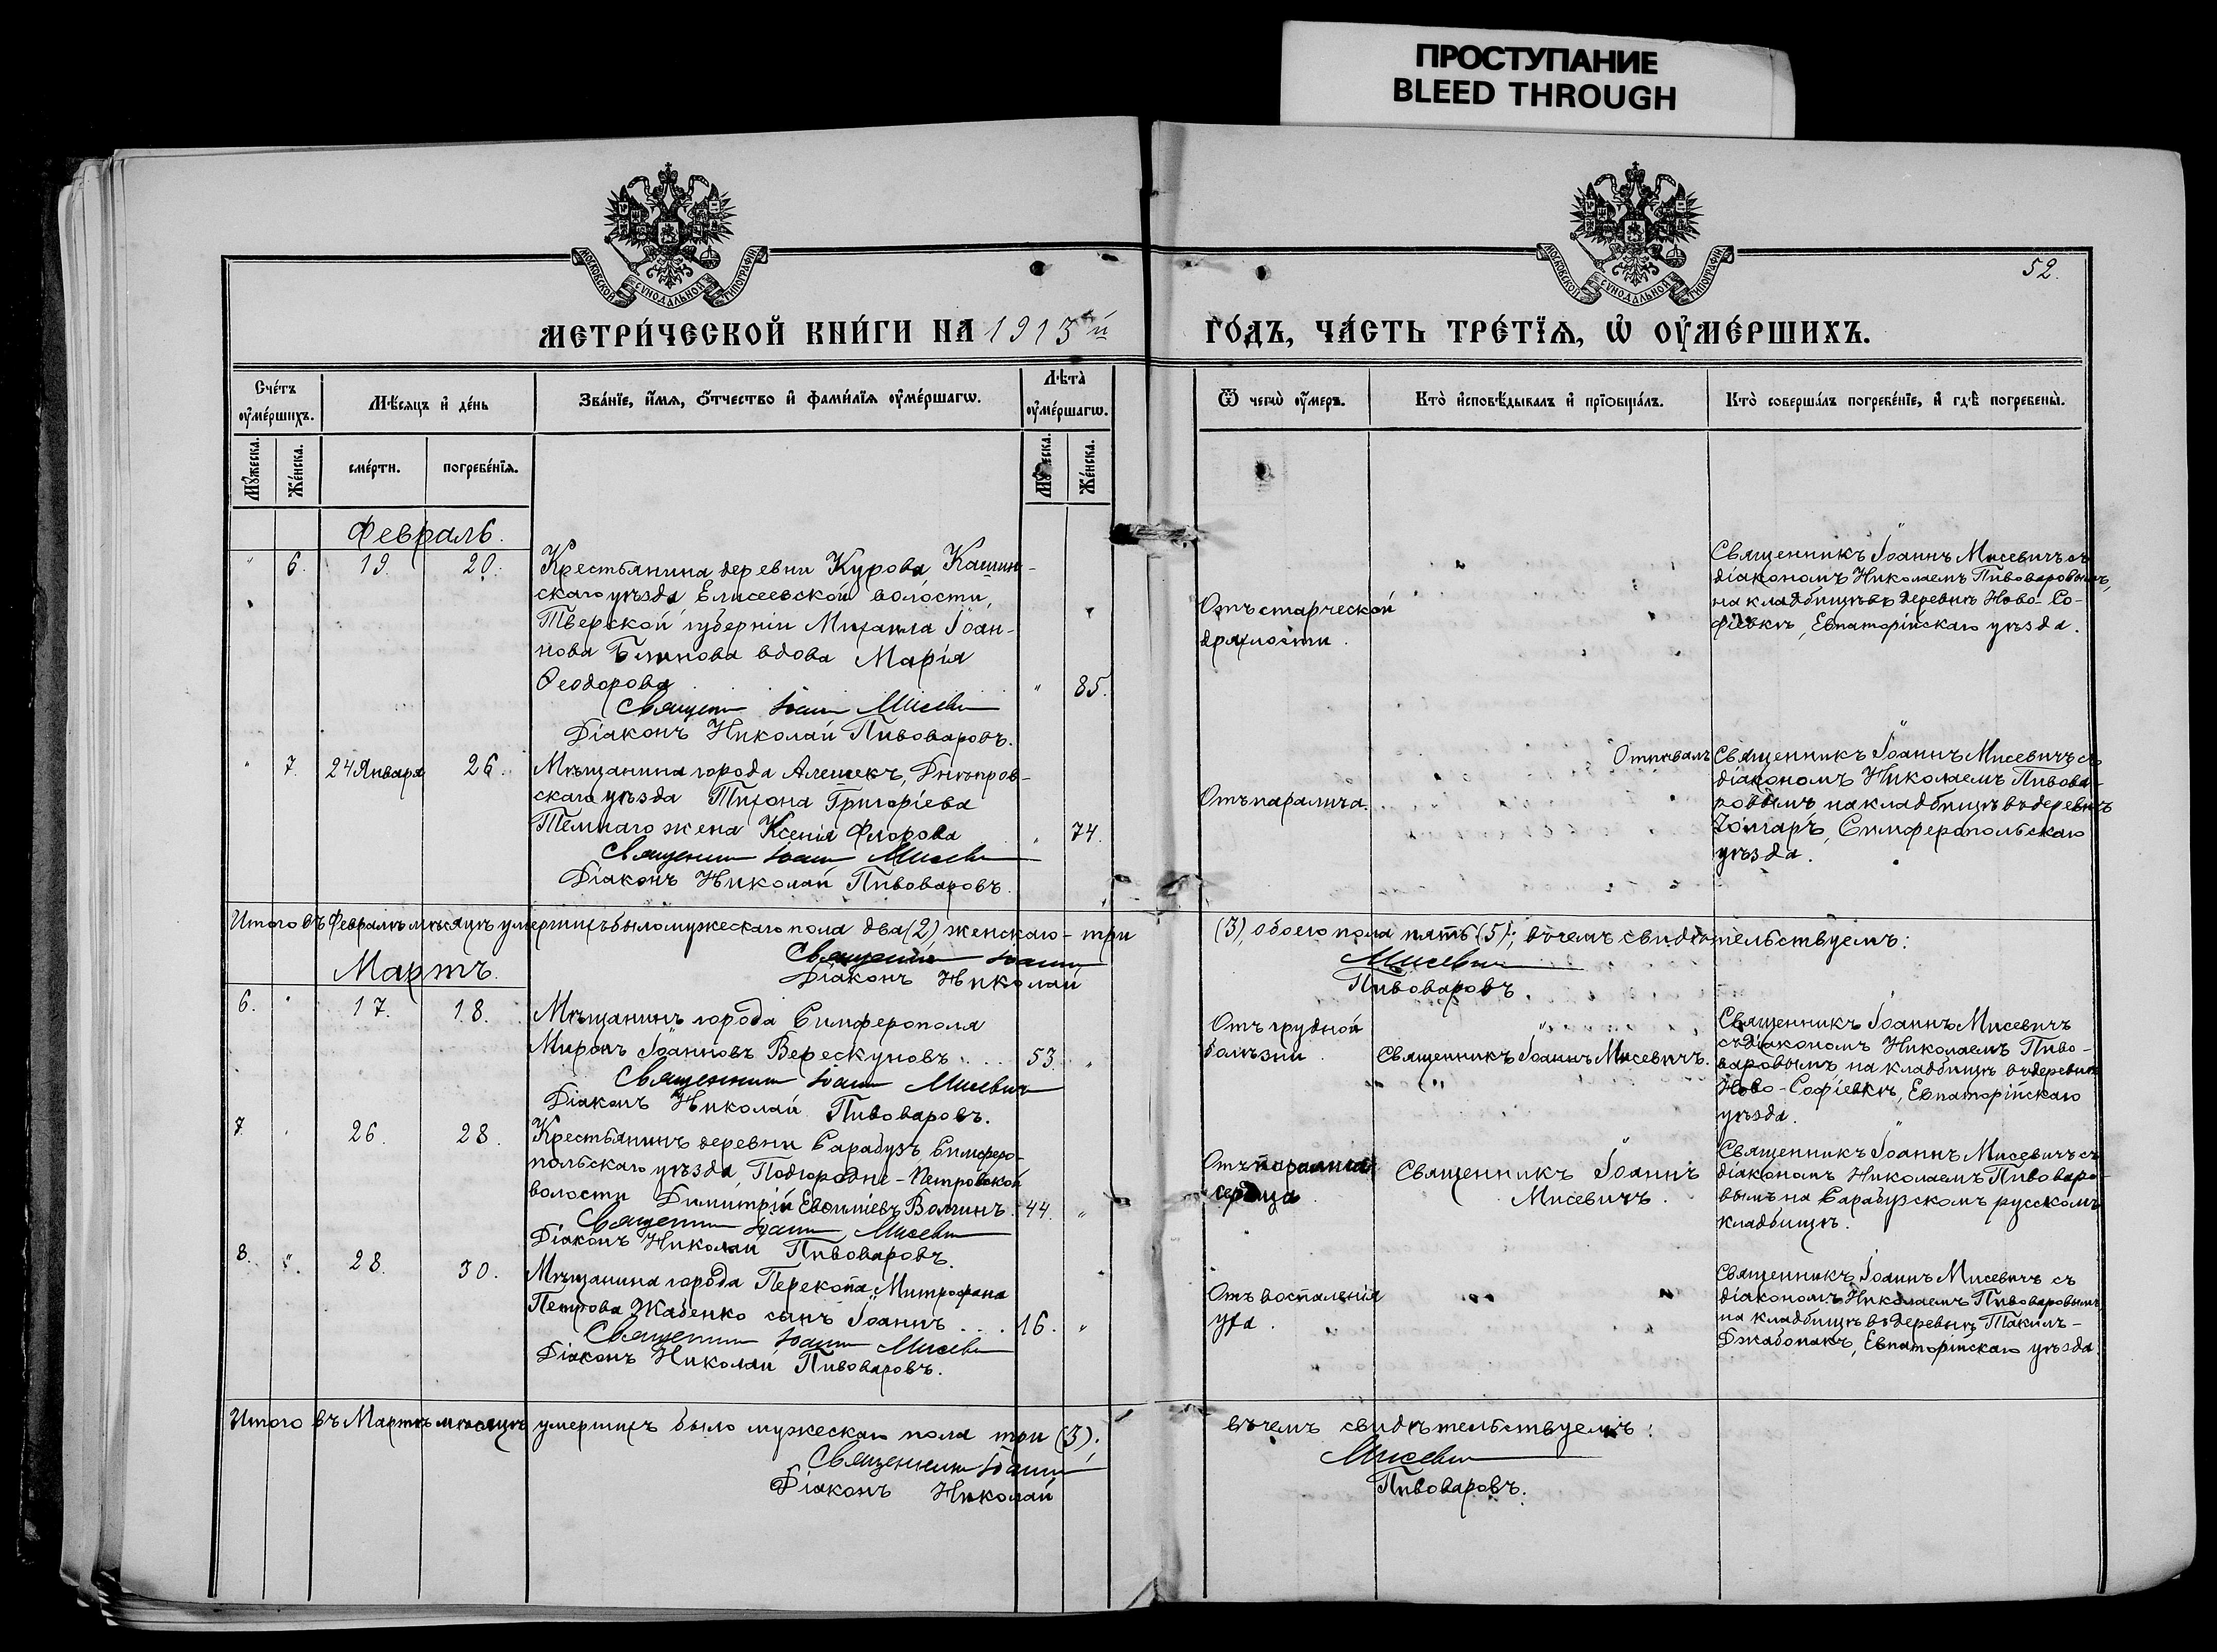 ПРОСТУПАНИЕ
BLEED THROUGH
МОСКОВСКОЙ СѴНОДАЛЬНОЙ ТИПОГРАФІИ
МОСКОВСКОЙ СѴНОДАЛЬНОЙ ТИПОГРАФІИ
52.
МЕТРИ́ЧЕСКОЙ КНИ́ГИ НА 1913й
ГО́ДЪ, ЧА́СТЬ ТРЕ́ТЇѦ, Ѡ ОУ҆МЕ́РШИХЪ.
Сче́тъ оу҆ме́ршихъ.
Мѣ́сяцъ и҆ де́нь
Зва́нїе, и҆́мѧ, о҆́тчество и҆ фами́лїѧ оу҆ме́ршагѡ.
Лѣ́та оу҆ме́ршагѡ.
Ѿ чегѡ̀ оу҆́меръ.
Кто̀ и҆сповѣ́дывалъ и҆ прїѡбща́лъ.
Кто̀ соверша́лъ погребе́нїе, и҆ гдѣ̀ погребены̀.
Мꙋ́жеска.
Же́нска.
сме́рти.
погребе́нїѧ.
Мꙋ́жеска.
Же́нска.
Февраль.
" 6. 19. 20.
Крестьянина деревни Курова Кашин-
скаго уѣзда Елисеевской волости,
Тверской губерніи Михаила Іоан-
нова Блинова вдова Марія
Ѳеодорова " 85.
Священ Іоан Мисеви
Діаконъ Николай Пивоваровъ.
Отъ старческой
дряхлости.
Священникъ Іоаннъ Мисевичъ съ
діакономъ Николаемъ Пивоваровымъ,
на кладбищѣ въ деревнѣ Ново-Со-
фіевкѣ, Евпаторійскаго уѣзда.
" 7. 24 Января 26.
Мѣщанина города Алешекъ, Днѣпров-
скаго уѣзда Тихона Григоріева
Темнаго жена Ксенія Флорова " 74.
Священни Іоан Мисеви
Діаконъ Николай Пивоваровъ.
Отъ паралича.
Отпѣвалъ Священникъ Іоаннъ Мисевичъ съ
діакономъ Николаемъ Пивова-
ровымъ на кладбищѣ въ деревнѣ
Симферопольскаго
уѣзда.
Итого въ Февралѣ мѣсяцѣ умершихъ было мужескаго пола два (2), женскаго - три
(3), обоего пола пять (5); въ чемъ свидѣтельствуемъ:
Священник Іоанн
Мисевич
Діаконъ Николай
Пивоваровъ.
Мартъ.
6. " 17. 18.
Мѣщанинъ города Симферополя
Миронъ Іоанновъ Верескуновъ 53. "
Священник Іоанн Мисевич
Діаконъ Николай Пивоваровъ.
Отъ грудной
болѣзни.
Священникъ Іоаннъ Мисевичъ.
Священникъ Іоаннъ Мисевичъ
съ діакономъ Николаемъ Пиво-
варовымъ на кладбищѣ въ деревнѣ
Ново-Софіевкѣ, Евпаторійскаго
уѣзда.
7. " 26. 28.
Крестьянинъ деревни Сарабузъ, Симферо-
польскаго уѣзда, Подгородне-Петровской
волости Димитрій Евѳиміевъ 44. "
Священни Іоанн Мисеви
Діаконъ Николай Пивоваровъ.
Отъ паралича
сердца.
Священникъ Іоаннъ
Мисевичъ.
Священникъ Іоаннъ Мисевичъ съ
діакономъ Николаемъ Пивоваро-
вымъ на Сарабузскомъ русскомъ
кладбищѣ.
8. " 28. 30.
Мѣщанина города Перекопа Митрофана
Петрова Жабенко сынъ Іоаннъ 16. "
Священни Іоанн Мисеви
Діаконъ Николай Пивоваровъ.
Отъ воспаленія
уха.
Священникъ Іоаннъ Мисевичъ съ
діакономъ Николаемъ Пивоваровымъ
на кладбищѣ въ деревнѣ Такилъ-
Джабонакъ, Евпаторійскаго уѣзда.
Итого въ Мартѣ мѣсяцѣ умершихъ было мужескаго пола три (3);
въ чемъ свидѣтельствуемъ:
Священник Іоанн
Мисевич
Діаконъ Николай
Пивоваровъ.